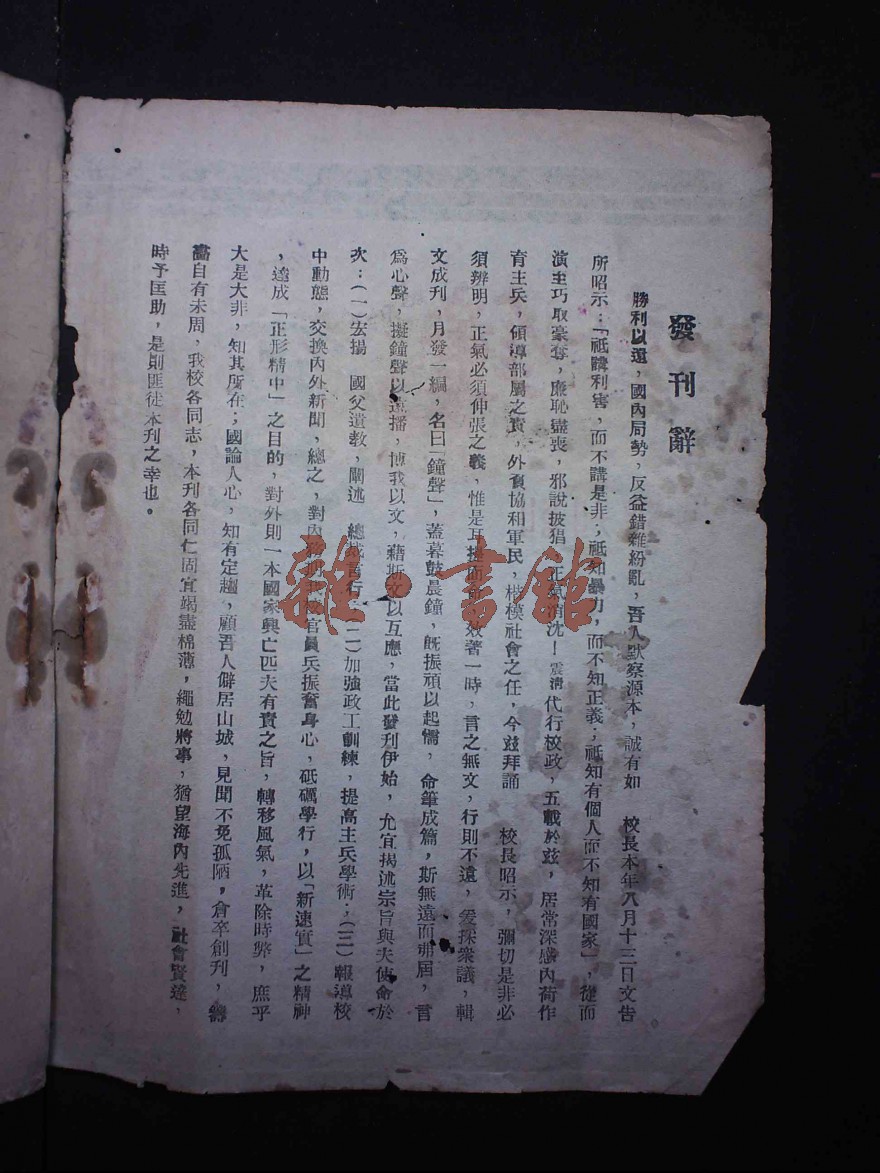 發刊辭
勝利以還，國內局勢，反益錯雜紛亂，吾人默察源本，誠有如　校長本年八月十三日文告
所昭示：「祇講利害，而不講是非；祇知暴力，而不知正義；祇知有個人而不知有國家」，從而
演至巧取豪奪，廉恥盡喪，邪說披猖，正氣消沈！震清代行校政，五載於茲，居常深感內荷作
育主兵，領導部屬之責，外負協和軍民，楷模社會之任，今茲拜誦　校長昭示，彌切是非必
須辨明，正氣必須伸張之義，惟是耳提面命，效著一時，言之無文，行則不遠，爰採衆議，輯
文成刊，月發一編，名曰「鐘聲」，蓋暮鼓晨鐘，旣振頑以起懦，命筆成篇，斯無遠而弗屆，言
爲心聲，擬鐘聲以遠播，博我以文，藉斯文以互應，當此發刊伊始，尤宜揭述宗旨與夫使命於
次：（一）宏揚　國父遺敎，闡述　總裁言行；（二）加強政工訓練，提高主兵學術；（三）報導校
中動態，交換內外新聞，總之，對內務期我校官員兵振奮身心，砥礪學行，以「新速實」之精神
，達成「正形精中」之目的，對外則一本國家興亡匹夫有責之旨，轉移風氣，革除時弊，庶乎
大是大非，知其所在；國論人心，知有定趨，顧吾人僻居山城，見聞不免孤陋，倉卒創刊，籌
畫自有未周，我校各同志，本刊各同仁固宜竭盡棉薄，繩勉將事，猶望海內先進，社會賢達，
時予匡助，是則匪徒本刊之幸也。
雜·書館